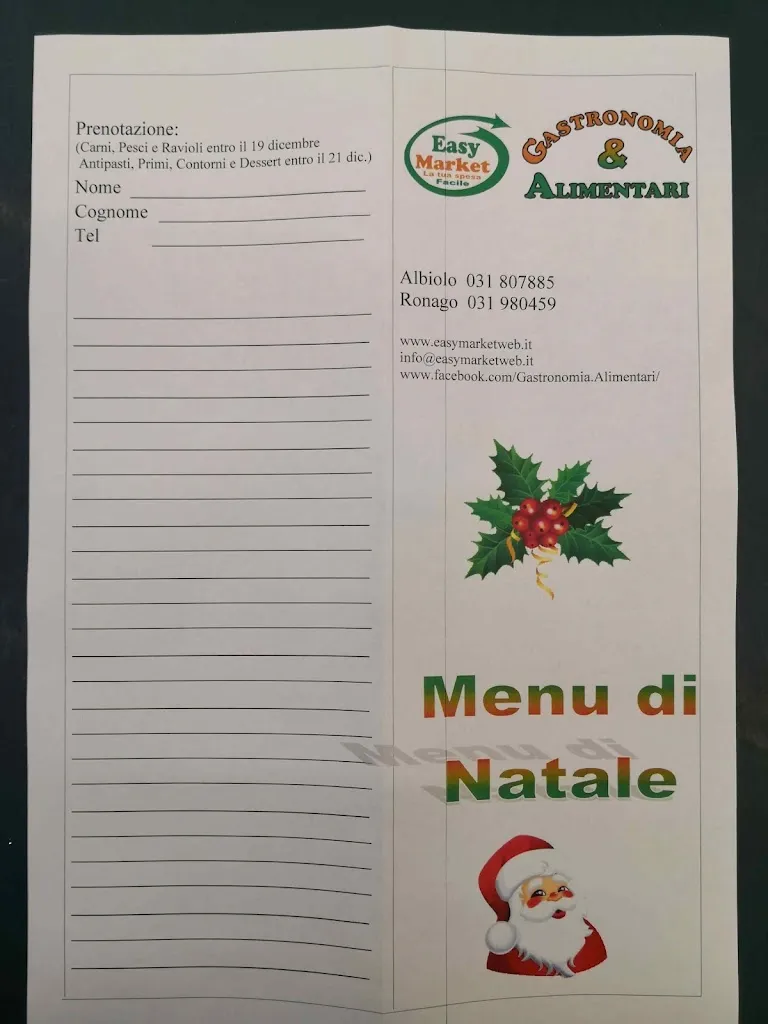 Prenotazione:
(Carni, Pesci e Ravioli entro il 19 dicembre
Antipasti, Primi, Contorni e Dessert entro il 21 dic.)
Nome
Cognome
Tel
Easy
Market
La tua spesa
Facile
GASTRONOMIA
&
ALIMENTARI
Albiolo 031 807885
Ronago 031 980459
www.easymarketweb.it
info@easymarketweb.it
www.facebook.com/Gastronomia.Alimentari/
Menu di
Natale